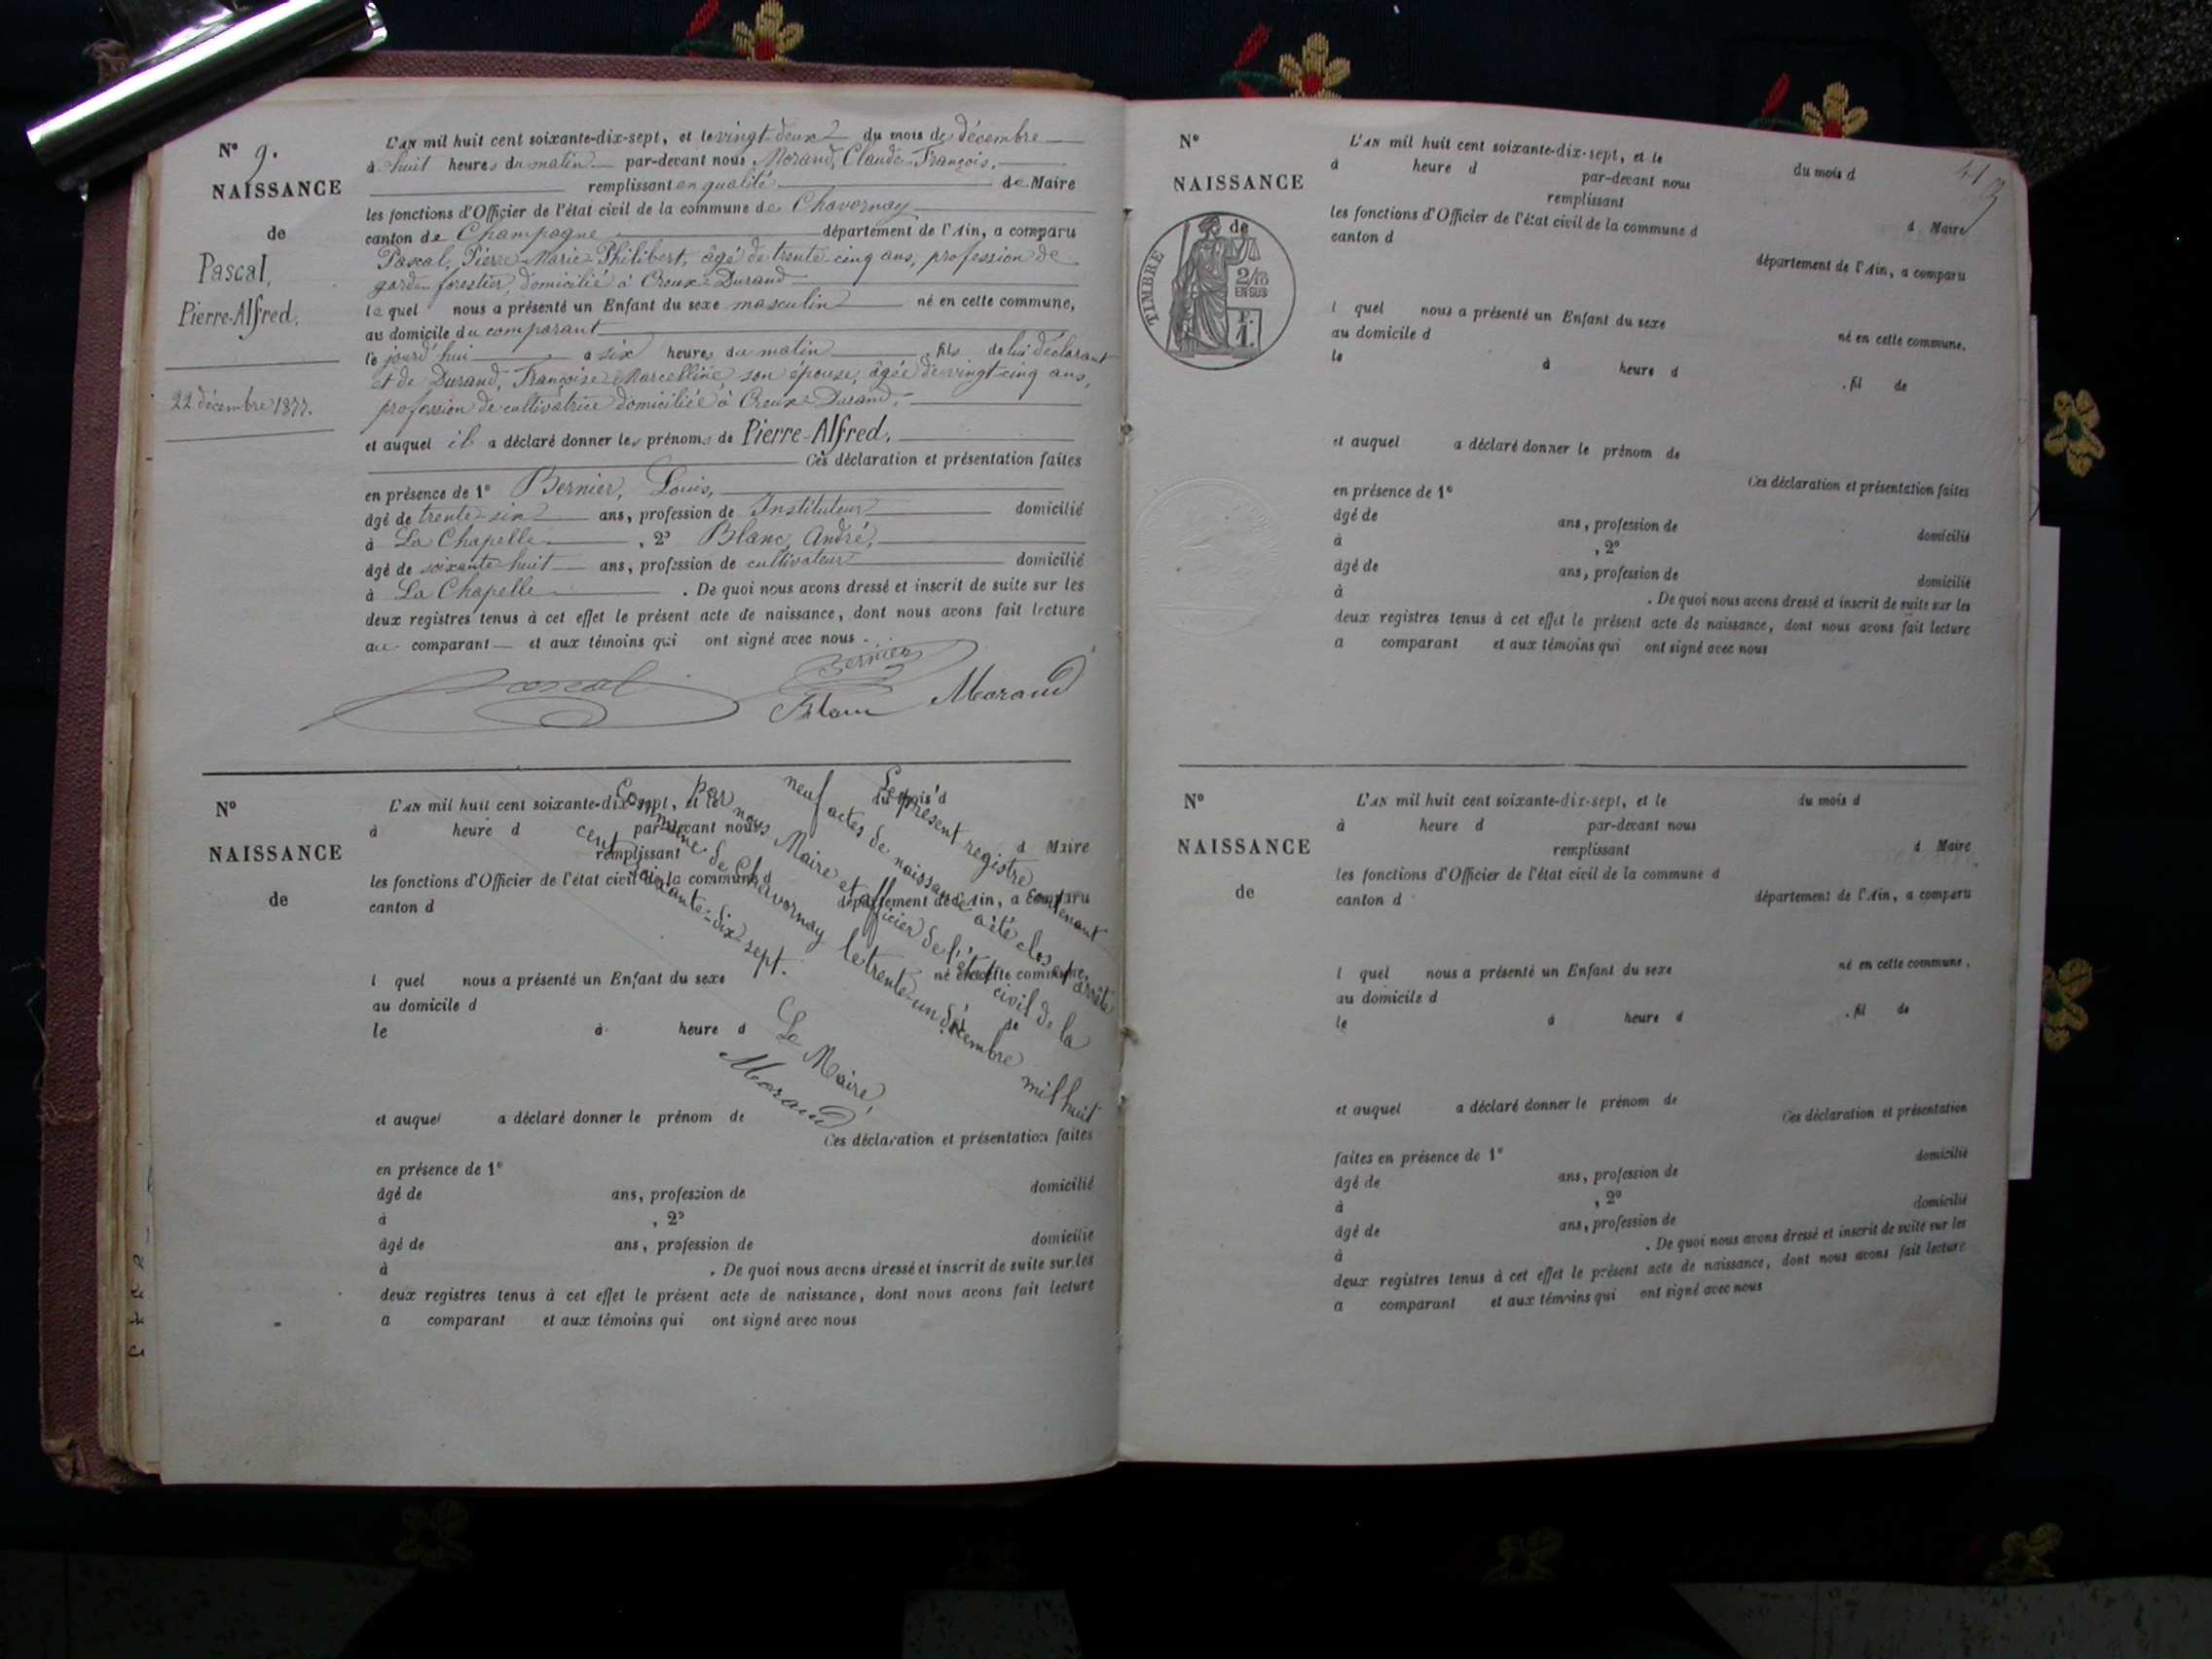 N° 9.
NAISSANCE
de
Pascal,
Pierre-Alfred.
22 décembre 1877.
L'AN mil huit cent soixante-dix-sept, et le vingt-deux du mois de décembre
à huit heures du matin par-devant nous Morand, Claude-François,
remplissant en qualité de Maire
les fonctions d'Officier de l'état civil de la commune de Chavornay
canton de Champagne département de l'Ain, a comparu
Pascal, Pierre-Marie-Philibert, âgé de trente-cinq ans, profession de
garde forestier, domicilié à Creux-Durand
lequel nous a présenté un Enfant du sexe masculin né en cette commune,
au domicile du comparant
le jourd'hui à six heures du matin, fils de lui déclarant
et de Durand, Françoise-Marcelline, son épouse, âgée de vingt-cinq ans,
profession de cultivatrice domiciliée à Creux-Durand,
et auquel il a déclaré donner les prénoms de Pierre-Alfred.
Ces déclaration et présentation faites
en présence de 1° Bernier, Louis,
âgé de trente-six ans, profession de Instituteur domicilié
à La Chapelle, 2° Blanc, André,
âgé de soixante-huit ans, profession de cultivateur domicilié
à La Chapelle. De quoi nous avons dressé et inscrit de suite sur les
deux registres tenus à cet effet le présent acte de naissance, dont nous avons fait lecture
au comparant et aux témoins qui ont signé avec nous.
Pascal Bernier
Blanc Morand
N°
NAISSANCE
de
L'AN mil huit cent soixante-dix-sept, et le du mois d
à heure d par-devant nous
remplissant d Maire
les fonctions d'Officier de l'état civil de la commune d
canton d département de l'Ain, a comparu
l quel nous a présenté un Enfant du sexe né en cette commune,
au domicile d
le à heure d de
et auquel a déclaré donner le prénom de
Ces déclaration et présentation faites
en présence de 1°
âgé de ans, profession de domicilié
à , 2°
âgé de ans, profession de domicilié
à . De quoi nous avons dressé et inscrit de suite sur les
deux registres tenus à cet effet le présent acte de naissance, dont nous avons fait lecture
a comparant et aux témoins qui ont signé avec nous
Le présent registre contenant
neuf actes de naissance a été clos et arrêté
par nous Maire et officier de l'état civil de la
Commune de Chavornay le trente-un décembre mil huit
cent soixante-dix-sept.
Le Maire,
Morand
N°
NAISSANCE
de
TIMBRE
2/10
EN SUS
41
L'AN mil huit cent soixante-dix-sept, et le du mois d
à heure d par-devant nous
remplissant d Maire
les fonctions d'Officier de l'état civil de la commune d
canton d département de l'Ain, a comparu
l quel nous a présenté un Enfant du sexe né en cette commune,
au domicile d
le à heure d , fil de
et auquel a déclaré donner le prénom de
Ces déclaration et présentation faites
en présence de 1°
âgé de ans, profession de domicilié
à , 2°
âgé de ans, profession de domicilié
à . De quoi nous avons dressé et inscrit de suite sur les
deux registres tenus à cet effet le présent acte de naissance, dont nous avons fait lecture
a comparant et aux témoins qui ont signé avec nous
N°
NAISSANCE
de
L'AN mil huit cent soixante-dix-sept, et le du mois d
à heure d par-devant nous
remplissant d Maire
les fonctions d'Officier de l'état civil de la commune d
canton d département de l'Ain, a comparu
l quel nous a présenté un Enfant du sexe né en cette commune,
au domicile d
le à heure d , fil de
et auquel a déclaré donner le prénom de
Ces déclaration et présentation
faites en présence de 1° domicilié
âgé de ans, profession de
à , 2° domicilié
âgé de ans, profession de
à . De quoi nous avons dressé et inscrit de suite sur les
deux registres tenus à cet effet le présent acte de naissance, dont nous avons fait lecture
a comparant et aux témoins qui ont signé avec nous